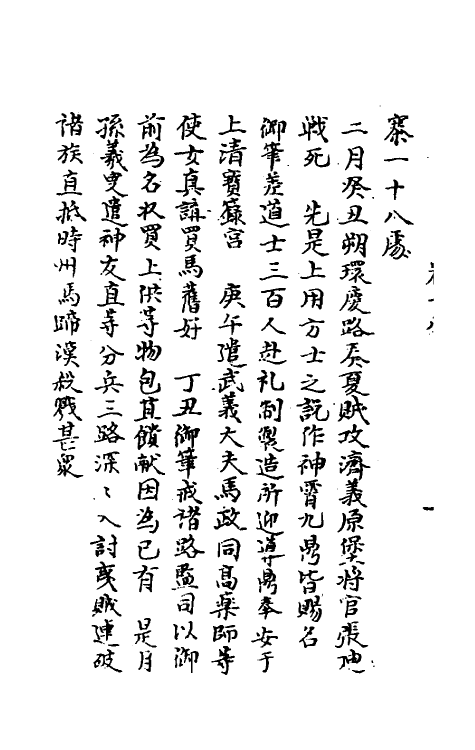 寨一十八處
二月癸丑朔環慶路奏夏賊攻濟義原堡將官張迪
戰死　先是上用方士之說作神霄九鼎皆賜名
御筆差道士三百人赴礼制製造所迎導鼎奉安于
上清寶籙宮　庚午遣武義大夫馬政同高藥師等
使女真講買馬舊好　丁丑御筆戒諸路監司以御
前為名收買上供等物包苴饋献因為己有　是月
孫羲叟遣神友直等分兵三路深〻入討夷賊連破
諸族直抵時州馬蹄漢殺戮甚衆